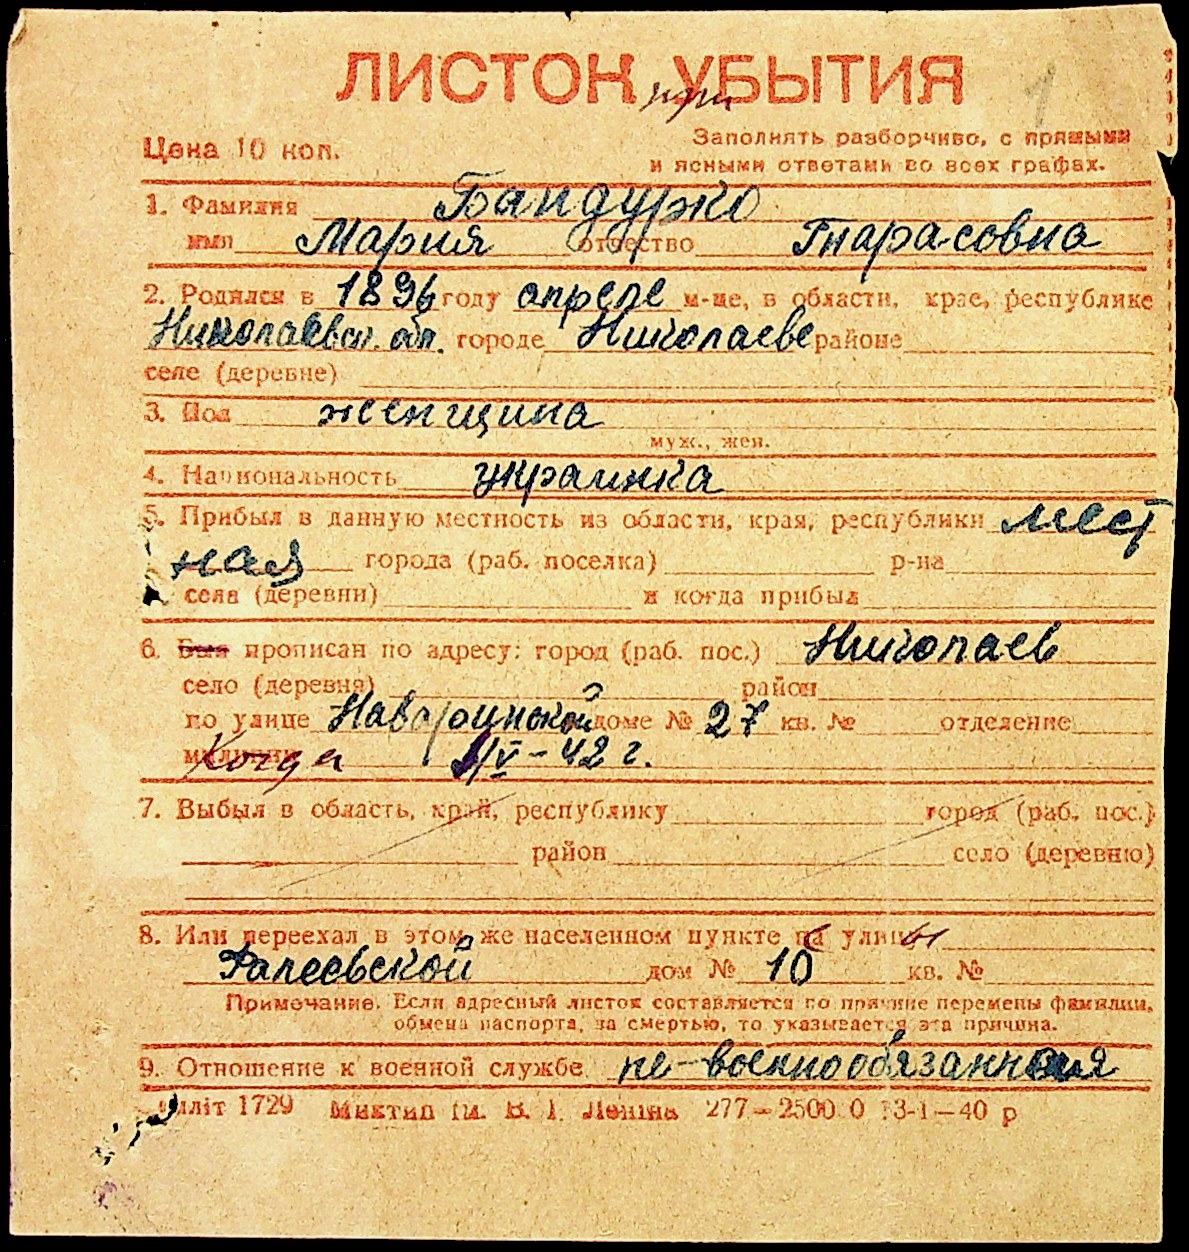 ЛИСТОК УБЫТИЯ
при
1
Цена 10 коп.
Заполнять разборчиво, с прямыми
и ясными ответами во всех графах.
1. Фамилия Бандурко
имя Мария отчество Тарасовна
2. Родился в 1896 году апреле м-це, в области, крае, республике
Николаевск. обл. городе Николаеве районе
селе (деревне)
3. Пол женщина
муж., жен.
4. Национальность украинка
5. Прибыл в данную местность из области, края, республики мест
ная города (раб. поселка) р-на
села (деревни) и когда прибыл
6. Был прописан по адресу: город (раб. пос.) Николаев
село (деревня) район
по улице Наваринской доме № 27 кв. № отделение
милиции Когда 1/V-42 г.
7. Выбыл в область, край, республику город (раб. пос.)
район село (деревню)
8. Или переехал в этом же населенном пункте на улицы
Фалеевской дом № 10 кв. №
Примечание. Если адресный листок составляется по причине перемены фамилии,
обмена паспорта, за смертью, то указывается эта причина.
9. Отношение к военной службе не-военнообязанная
1729 Миктип ім. В. І. Леніна 277—2500 0 13-1—40 р